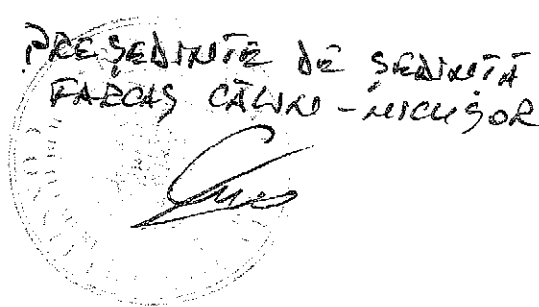 PREȘEDINTE DE ȘEDINȚĂ
FARCAȘ CĂLIN-NICUȘOR